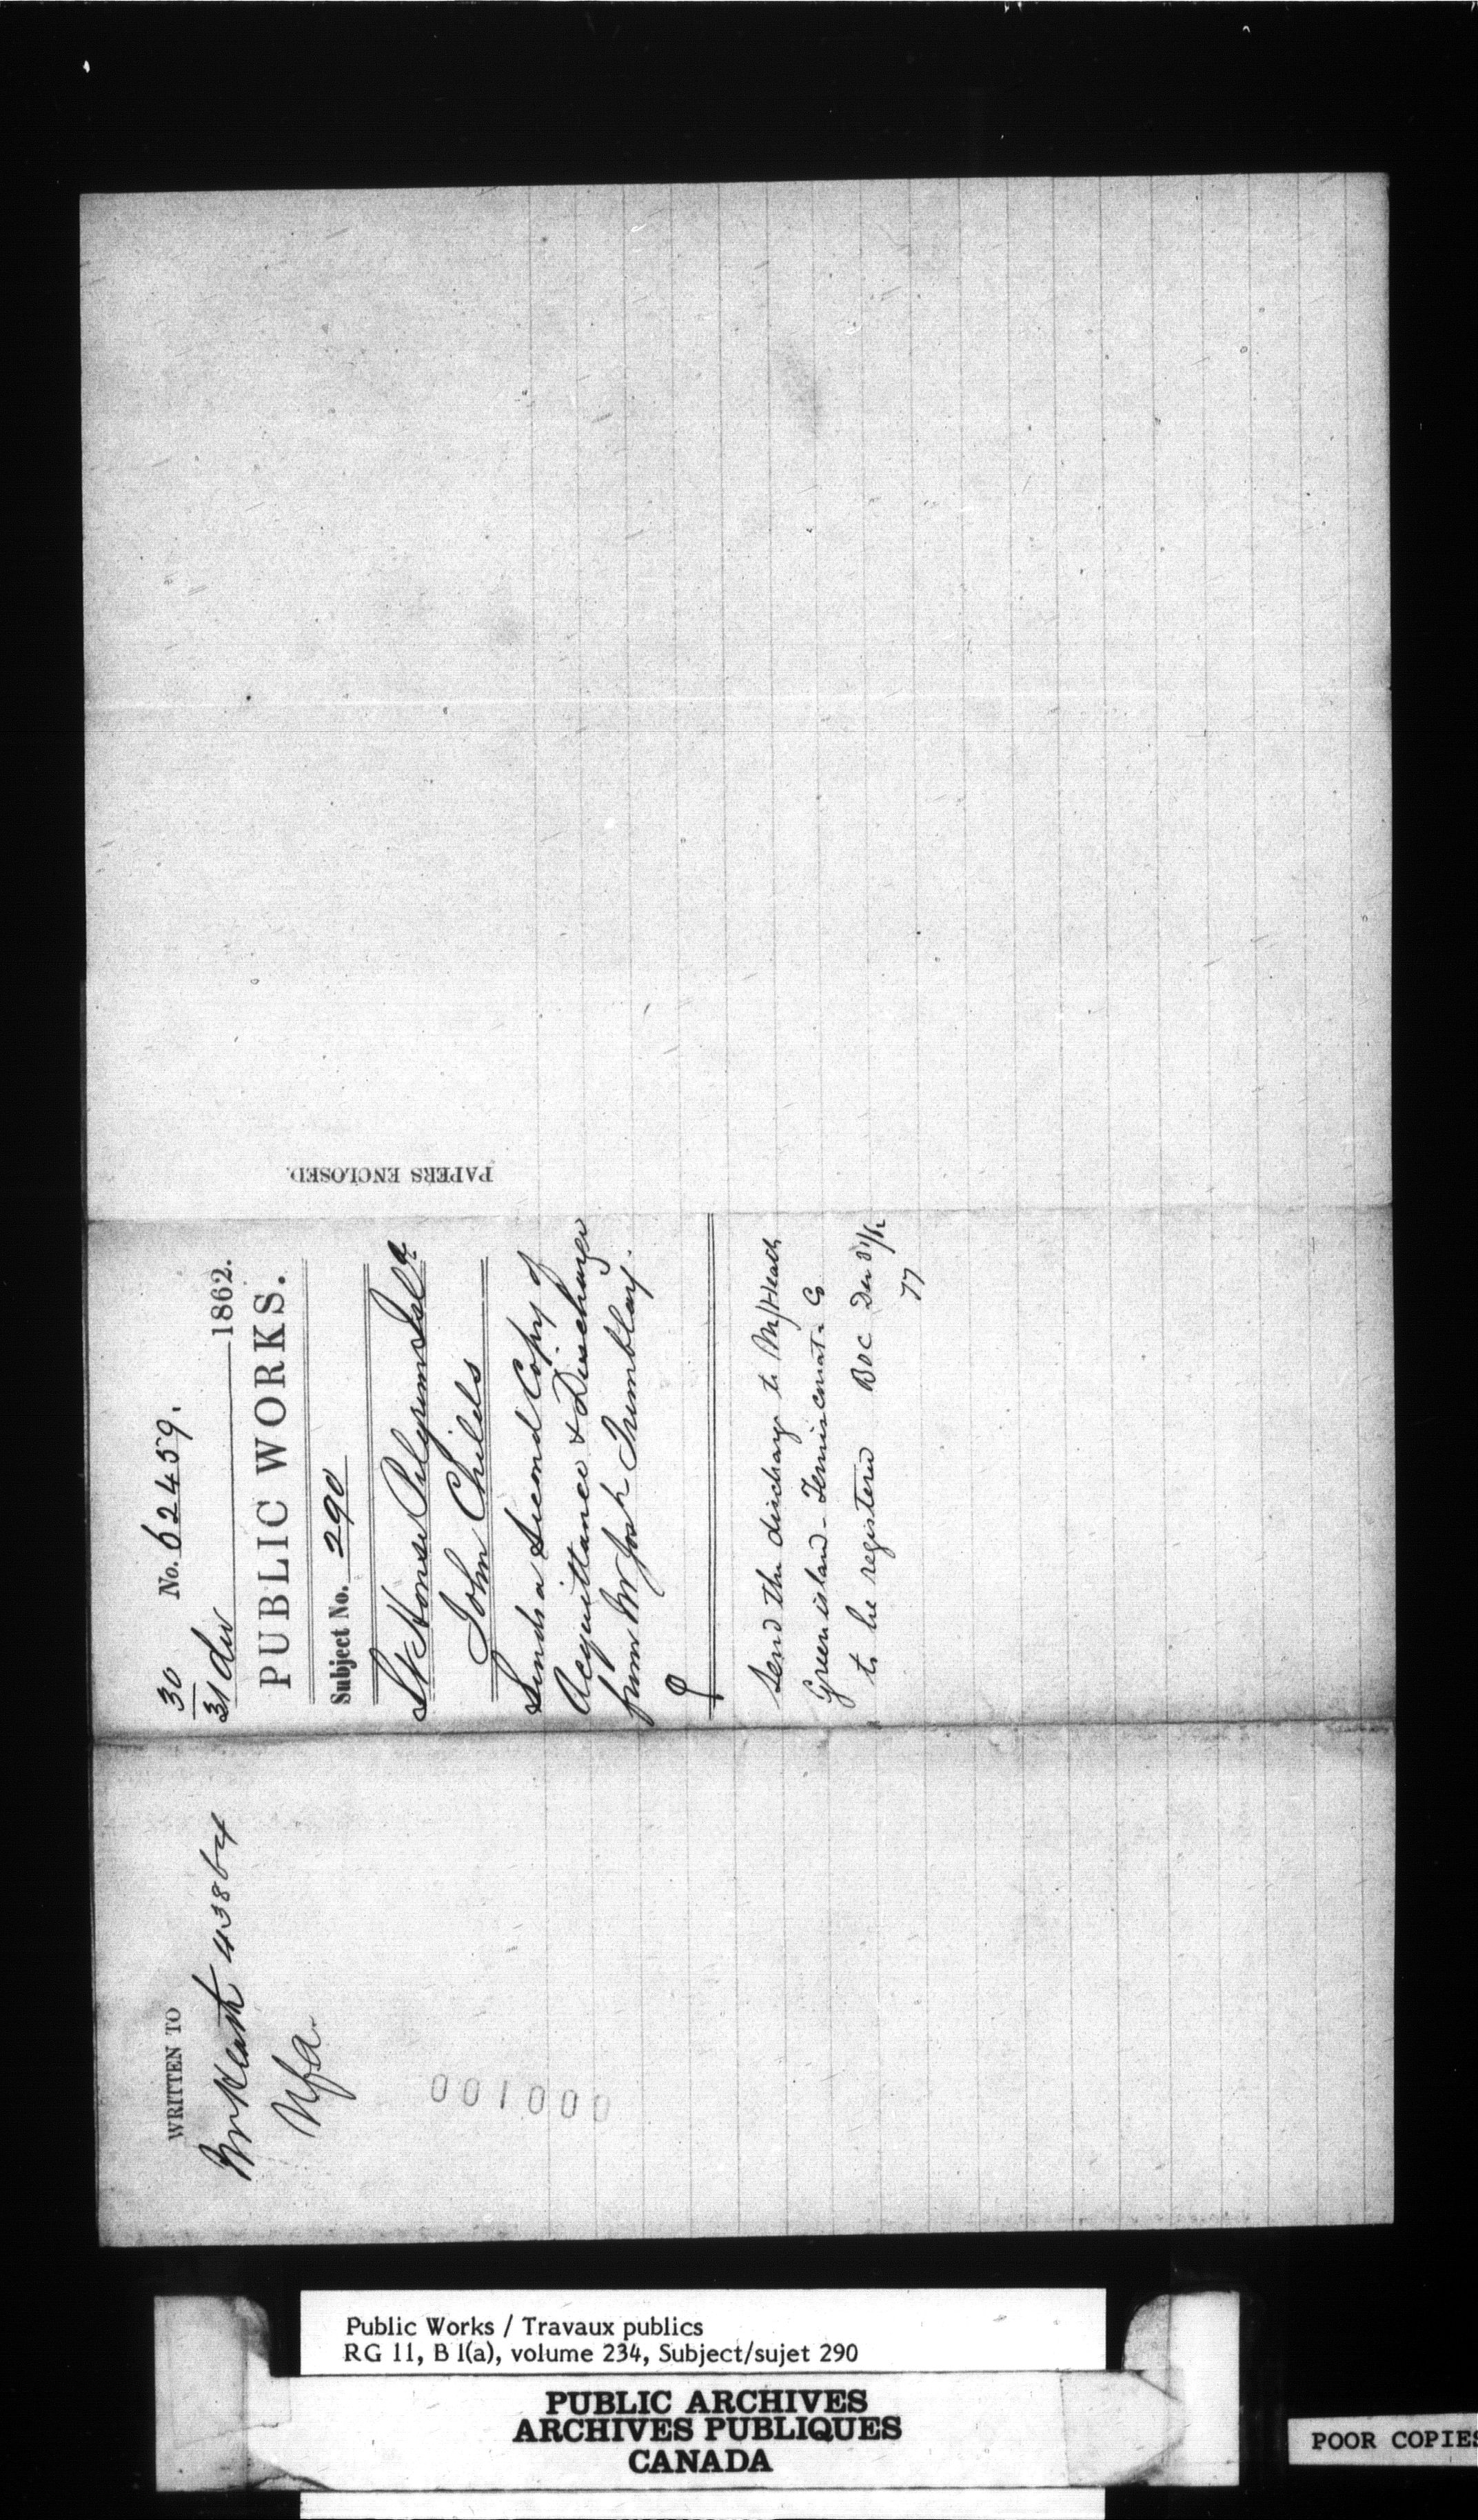 30 No. 62459.
31 Dec 1862.
PUBLIC WORKS.
Subject No. 290
Lt House Pilgrim Isld
John Childs
Sends a Second Copy of
Acquittance & Discharge
from Mr Josh Trembley.
Send the discharge to Mr Heath
Green island - Temiscouata Co
to be registered Dec 31/12
77
PAPERS ENCLOSED.
WRITTEN TO
Mr Heath 43864
Nfa.
001000
Public Works / Travaux publics
RG 11, B 1(a), volume 234, Subject/sujet 290
PUBLIC ARCHIVES
ARCHIVES PUBLIQUES
CANADA
POOR COPIES